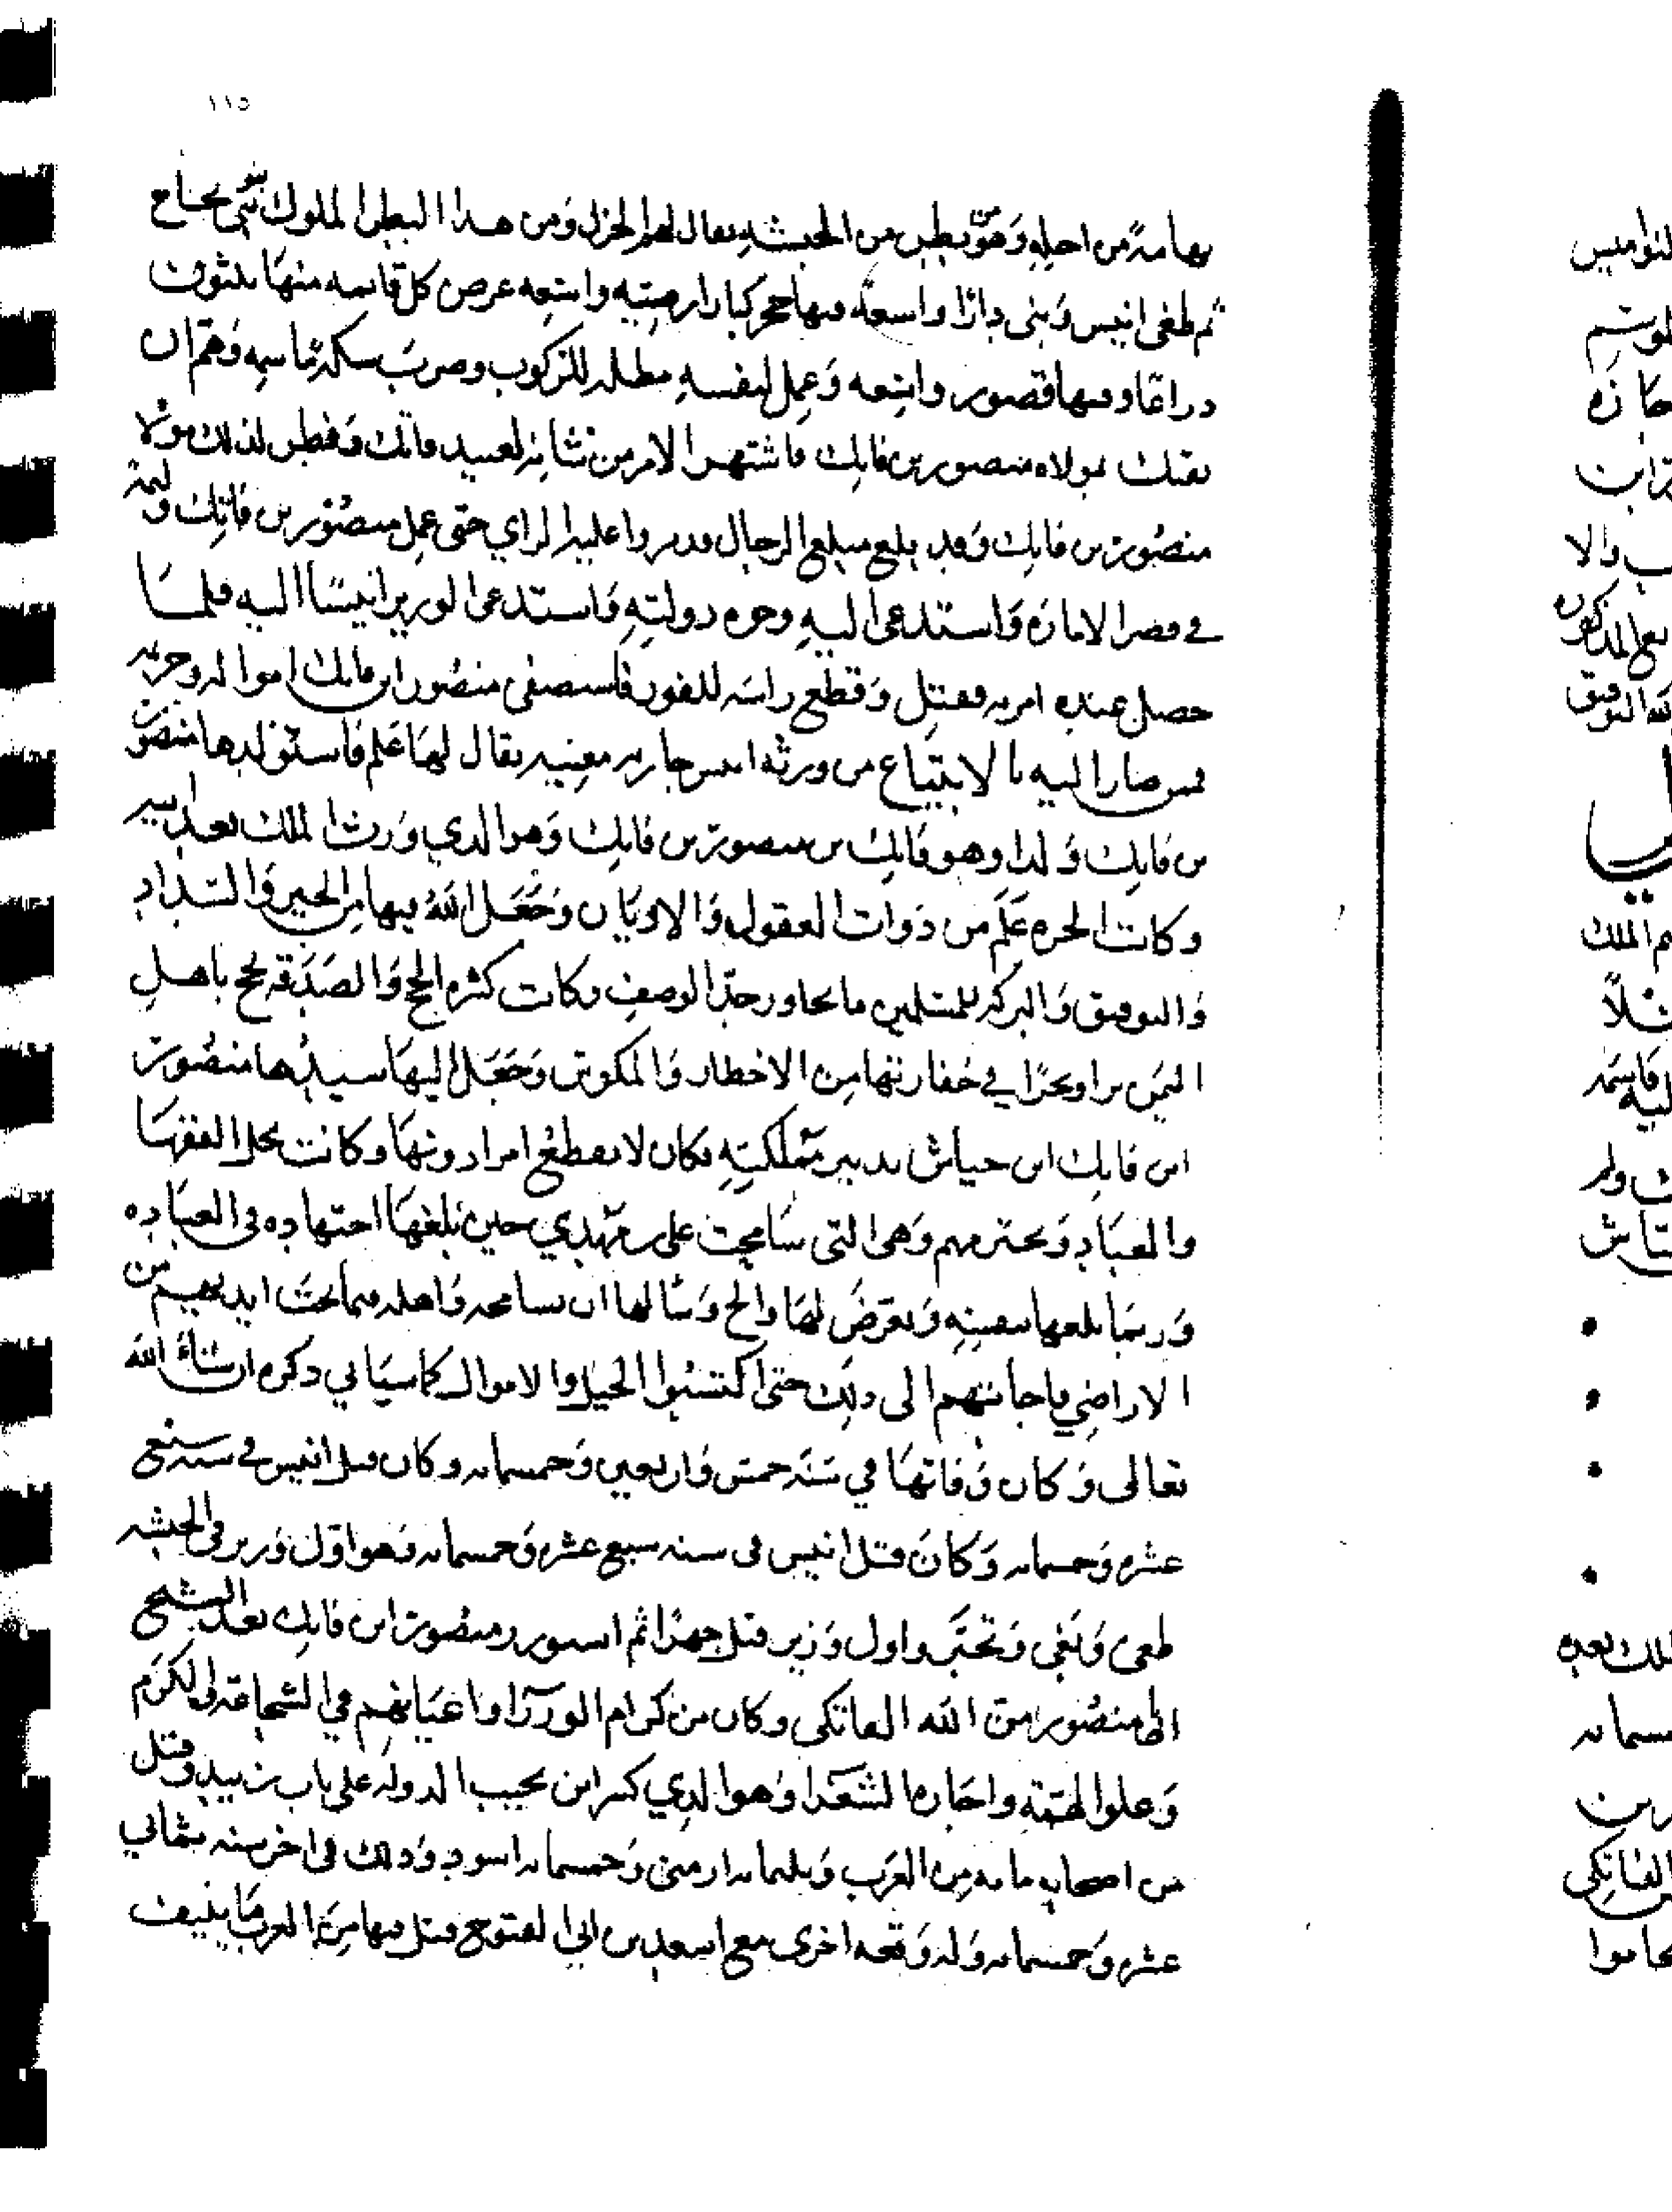 ١١٥
تهامة من اجله وهو من بطن من الحبشه يقال لهم الجزل ومن هذا البطن الملوك بنو نجاح
ثم طغى انيس وبنى دارًا واسعة فيها حجر كبار ارضيته واسعه عرض كل قاعه منها ثلثون
دراعًا وفيها قصور واسعه وعمل لنفسه مظله للركوب وضرب سكة باسمه وهم ان
يفتك بمولاه منصور بن فاتك فاشتهر الامر من شانه لعبيد فاتك وفطن لذلك مولا
منصور بن فاتك وقد بلغ مبلغ الرجال ودبروا عليه الراي حتى عمل منصور بن فاتك وليمة
في قصر الامارة واستدعى اليه وجوه دولته واستدعى الوزير انيسًا اليه فلما
حصل عنده امر به فقتل وقطع راسه للفور فاستصفى منصور ابن فاتك امواله وحريمه
فمن صار اليه بالابتياع من ورثة انيس جاريه مغنيه يقال لها علم فاستولدها منصور
بن فاتك ولدا وهو فاتك بن منصور بن فاتك وهو الدي ورث الملك بعد ابيه
وكانت الحره علم من ذوات العقول والاديان وجعل الله فيها من الخير والسداد
والتوفيق والبركه للمسلمين ما يجاوز حد الوصف وكانت كثيره الحج والصدقه تحج باهل
اليمن برا وبحرًا في خفارتها من الاخطار والمكوس وجعل اليها سيدها منصور
ابن فاتك ابن جياش تدبير مملكته فكان لا يقطع امرا دونها وكانت تجل الفقها
والعباد وتحترمهم وهي التي سامحت علي بن مهدي حين بلغها اجتهاده في العباده
وربما بلغها بنفسه وتعرض لها والح وسالها ان تسامحه واهله فيما تحت ايديهم من
الاراضي فاجابتهم الى ذلك حتى اكتسبوا الخيل والاموال كما سياتي دكره ان شاء الله
تعالى وكان وفاتها في سنة خمس واربعين وخمسمايه وكان قتل انيس في سنة سبع
عشره وخمسمايه وكان قتل انيس في سنه سبع عشره وخمسمايه وهو اول وزير في الحبشه
طغى وبغى وتجبر واول وزير قتل جهرًا ثم استوزر منصور ابن فاتك بعده الشيخ
ابا منصور من الله الفاتكي وكان من كرام الوزرآ واعيانهم في الشجاعة والكرم
وعلو الهمة واجازه الشعرا وهو الدي كسر ابن نجيب الدوله على باب زبيد وقتل
من اصحابه مايه من العرب وثلثمايه ارمني وخمسمايه اسود وذلك في اخر سنه ثماني
عشره وخمسمايه وله وقعه اخرى مع اسعد بن ابي الفتوح قتل فيها من العرب ما ينيف